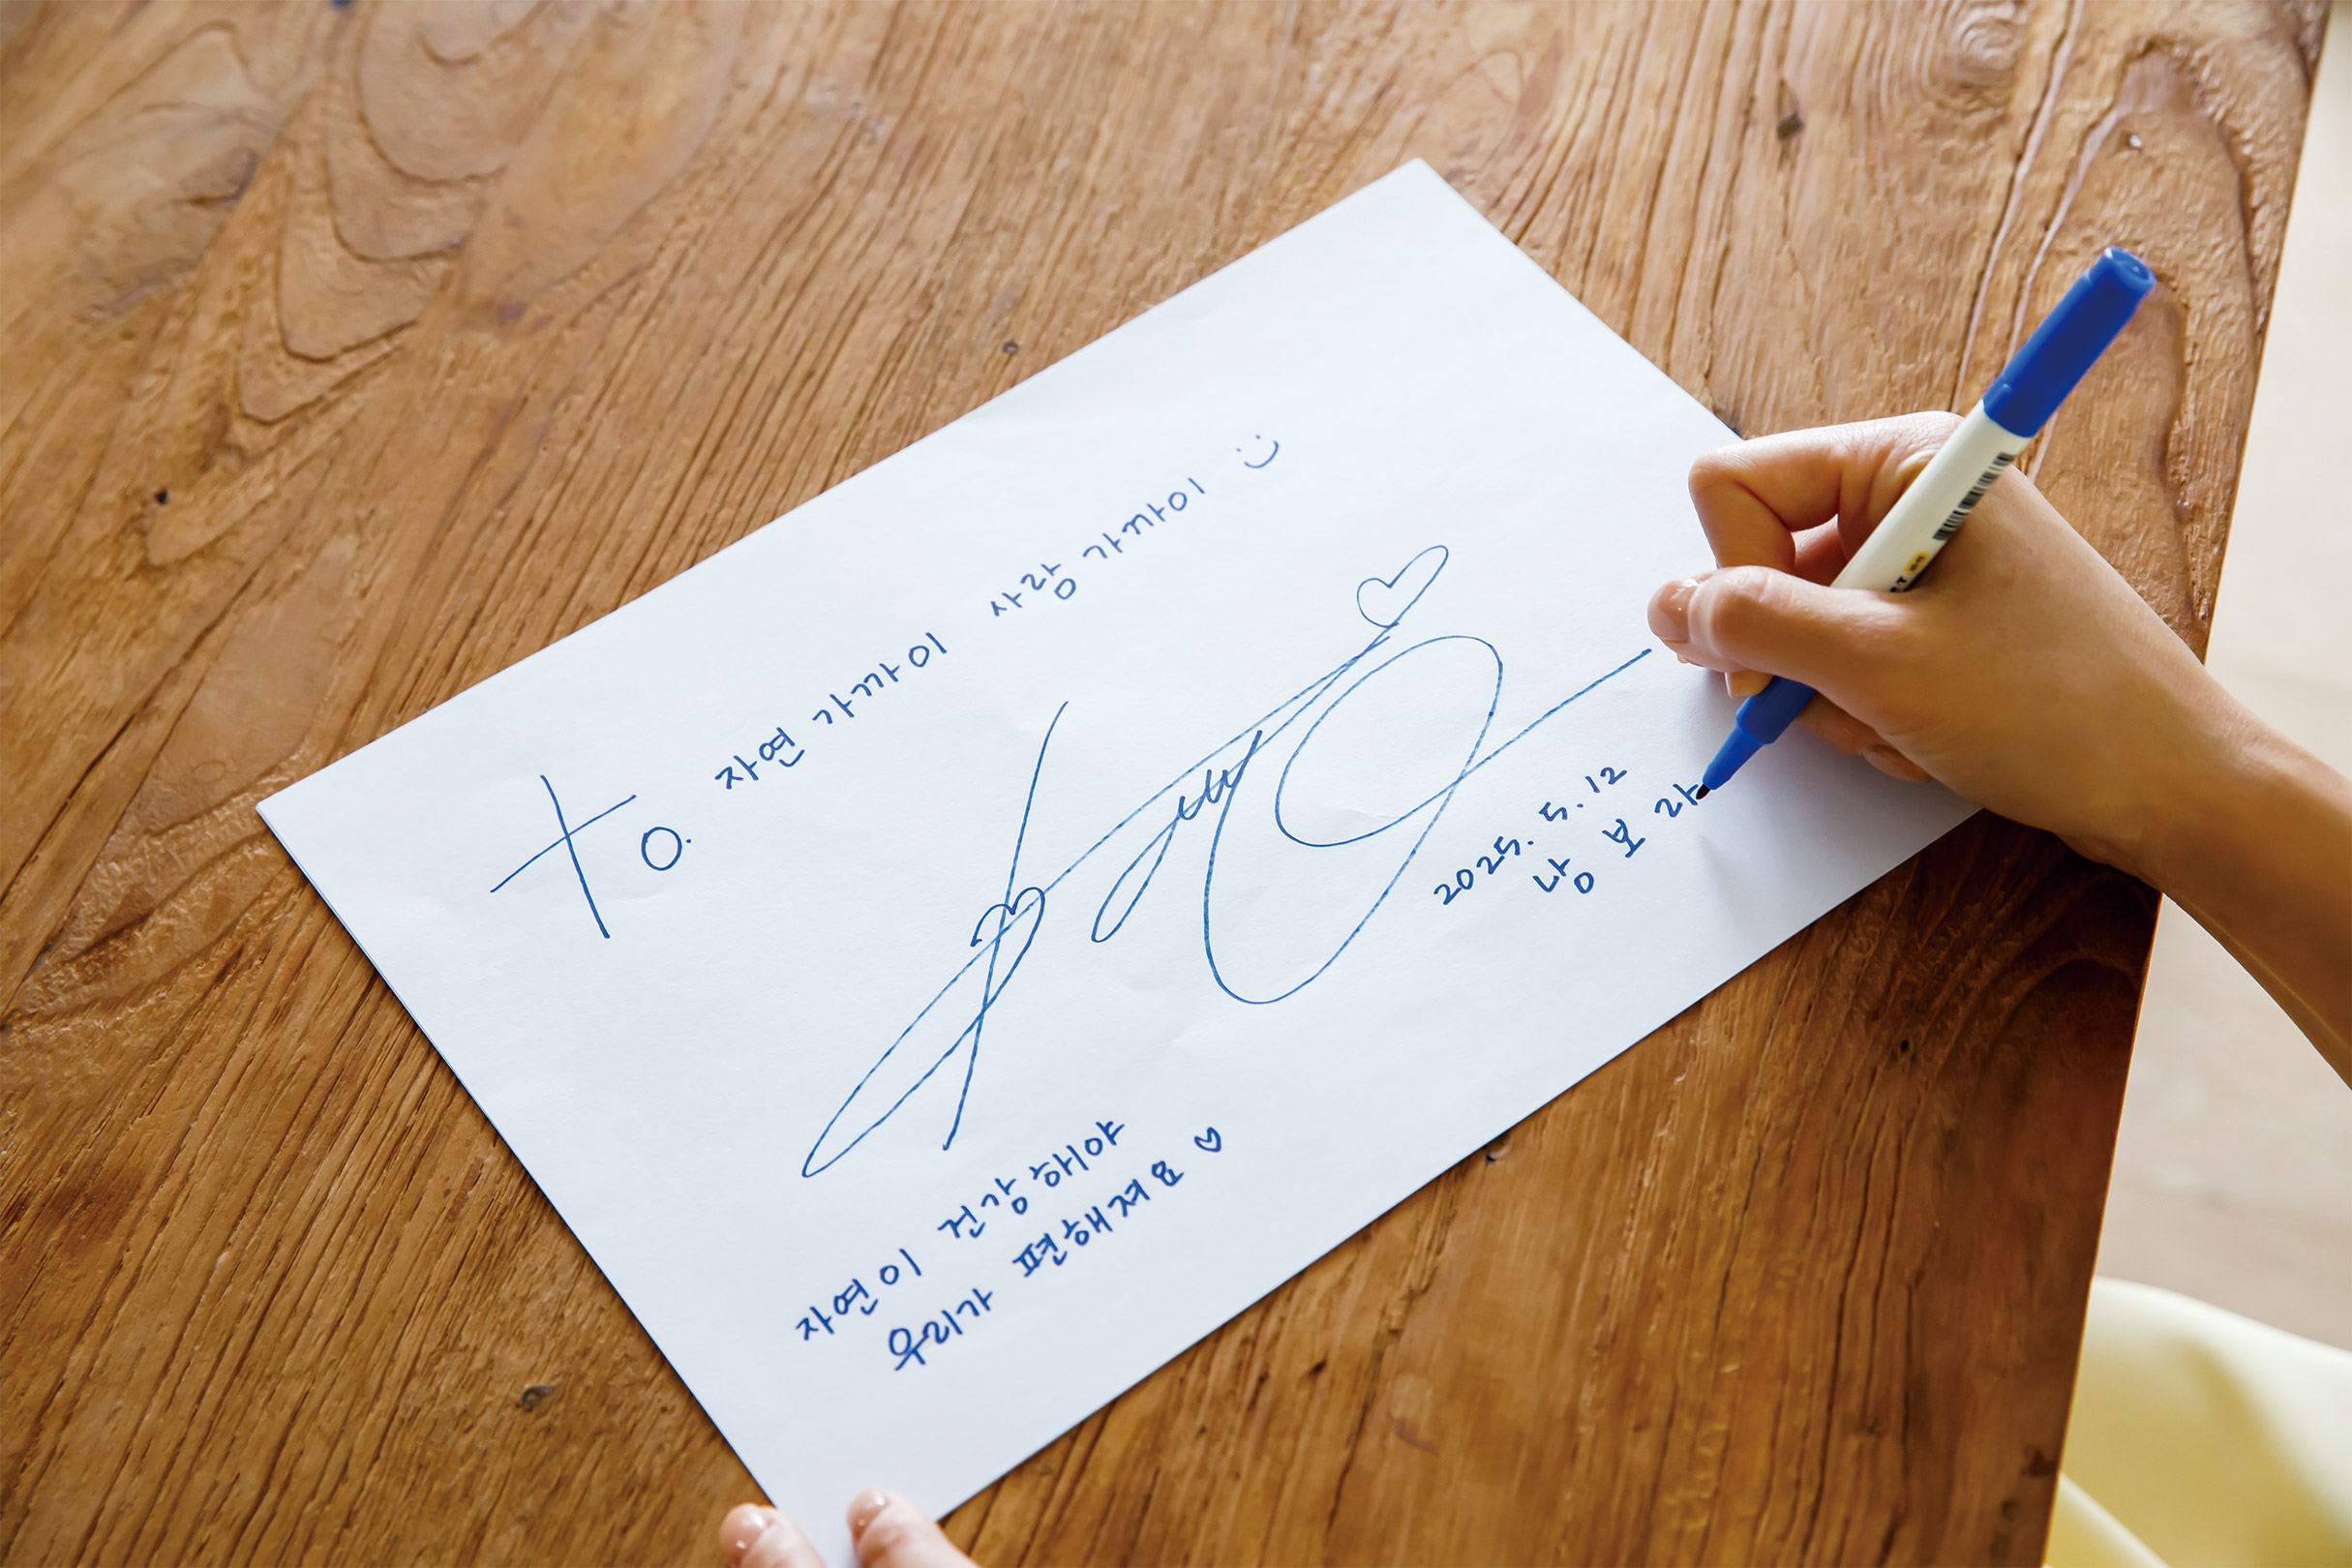 To. 자연 가까이 사람 가까이 :)
2025. 5. 12
남 보 라
자연이 건강해야
우리가 편해져요 ♡